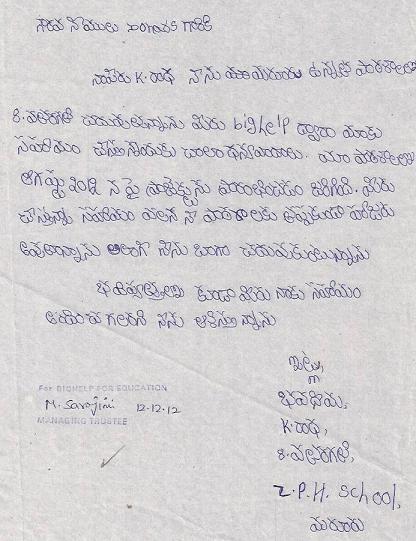 గౌరవనీయులు
నాపేరు K.రాధ నేను మరువూరు ఉన్నత పాఠశాలలో
8.వతరగతి చదువుతున్నాను మీరు bighelp ద్వారా మాకు
సహాయం చేస్తున్నందుకు చాలా ధన్యవాదాలు. మా పాఠశాలలో
ఆగష్టు నుండి ఈ ప్రాజెక్టును ప్రారంభించడం జరిగింది. మీరు
చేస్తున్న సహాయం వలన నేను పాఠశాలకు తప్పకుండా
వెళుతున్నాను అలాగే నేను బాగా చదువుకుంటున్నాను
భవిష్యత్తులో కూడా మీరు నాకు సహాయం
చేయగలరని నేను ఆశిస్తున్నాను
ఇట్లు,
భవదీయ,
K.రాధ,
8.వతరగతి,
Z.P.H. School,
మరువూరు
For BIGHELP FOR EDUCATION
M. Sarojini 12-12-12
MANAGING TRUSTEE